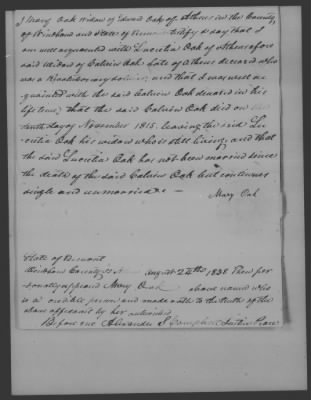 I Mary Oak Widow of Edward Oak of Athens in the County
of Windham and State of Vermont testify & say that I
am well acquainted with Lucretia Oak of Athens afore
said Widow of Calvin Oak late of Athens deceased who
was a Revolutionary soldier, and that I was well ac
quainted with the said Calvin Oak deceased in his
life time; that the said Calvin Oak died on the
tenth day of November 1815. leaving the said Lu
cretia Oak his widow who is still living, and that
the said Lucretia Oak has not been married since
the death of the said Calvin Oak but continues
single and unmarried. —
Mary Oak
State of Vermont
Windham County SS August 24th 1838 Then per
sonally appeared Mary Oak above named who
is a credible person and made oath to the truth of the
above affidavit by her subscribed
Before me Alexander S Campbell Justice Peace